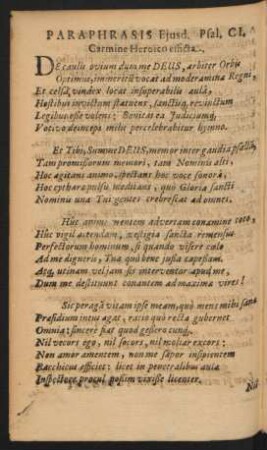 PARAPHRASIS Ejusd. Psal. CI.
Carmine Heroico efficta.
DE caulis ovium dum me DEUS, arbiter Orbis
Optimus, immeritū vocat ad moderamina Regni,
Et celsâ vindex locat insuperabilis aulâ,
Hostibus invictum statuens, sanctisq; revinctum
Legibus esse volens; Bonitas ea Judiciumq́;
Votivo deinceps mihi percelebrabitur hymno.
Et Tibi, Summe DEUS, memor inter gaudia psallā,
Tam promissorum memori, tam Nominis alti,
Hoc agitans animo, spectans hoc voce sonorâ,
Hoc cythara pulsu meditans, quò Gloria sancti
Nominis una Tui gentes crebrescat ad omnes.
Hùc animi mentem advertam conamine toto,
Hùc vigil attendam, vestigia sancta remensus
Perfectorum hominum, si quando visere cula
Ad me digneris, Tua quò bene jussa capessam.
Atq́, utinam veljam sis interventor apud me,
Dum me destituunt conantem ad maxima vires!
Sic peragā vitam ipse meam, quò mens mihi sana
Præsidium intus agat, ratio quò recta gubernet
Omnia; sincerè fiat quod gessero cunq́,
Nil vecors ego, nil socors, nil moliar excors:
Non amor amentem, non me sapor insipientem
Bacchicus efficiet: licet in penetralibus aulæ
Inspectore procul possim vixisse licenter.
Nil